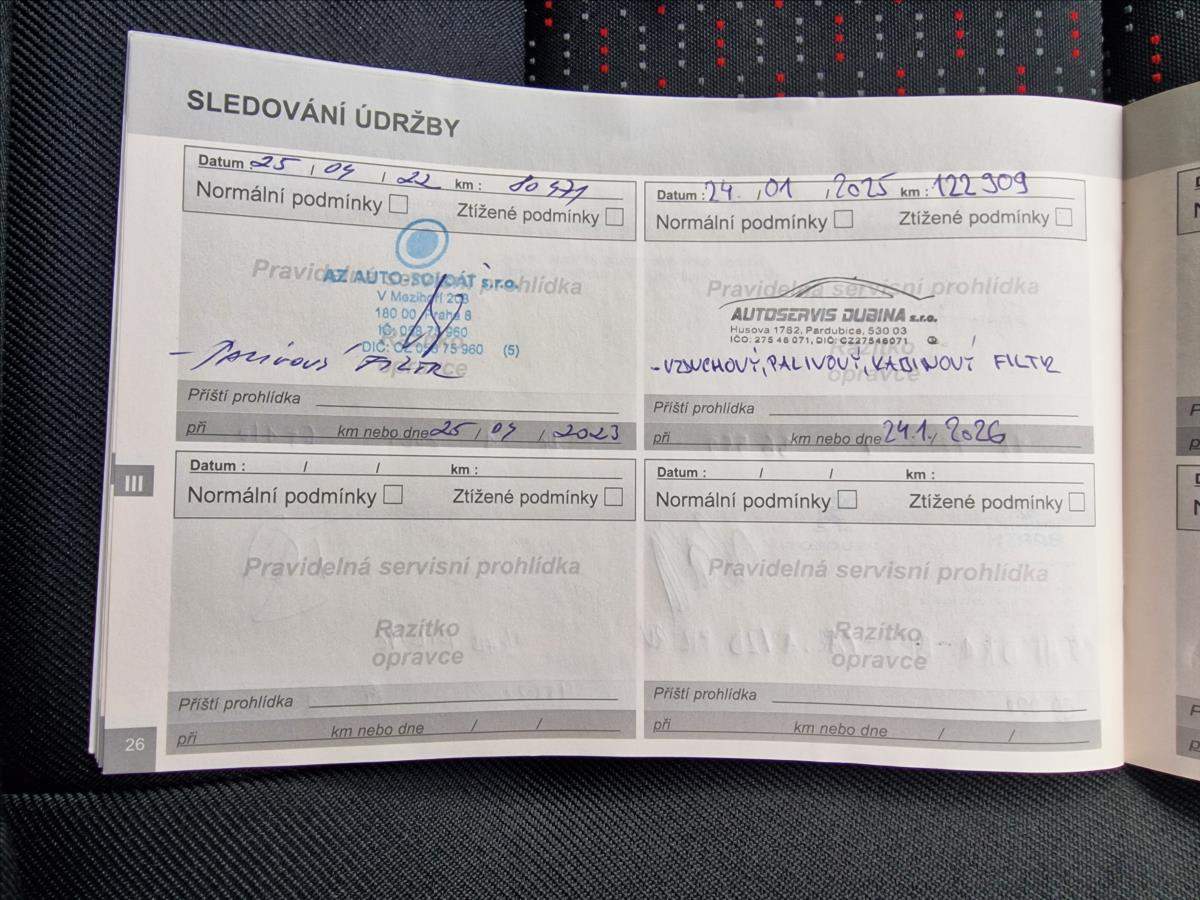 SLEDOVÁNÍ ÚDRŽBY
Datum : 25 / 04 / 22 km : 80 471
Normální podmínky Ztížené podmínky
Pravidelná servisní prohlídka
AZ AUTO-SOLDÁT s.r.o.
V Mezihoří 208
180 00 Praha 8
IČ:
DIČ: CZ (5)
Razítko
- PALIVOVÝ FILTR
opravce
Příští prohlídka
při km nebo dne 25 / 04 / 2023
Datum : 24. / 01 / 2025 km : 122 909
Normální podmínky Ztížené podmínky
Pravidelná servisní prohlídka
AUTOSERVIS DUBINA s.r.o.
Husova 1762, Pardubice, 530 03
IČO: 275 46 071, DIČ: CZ27546071
Razítko
- VZDUCHOVÝ, PALIVOVÝ, KABINOVÝ FILTR
opravce
Příští prohlídka
při km nebo dne 24.1. / 2026
III
Datum : / / km :
Normální podmínky Ztížené podmínky
Pravidelná servisní prohlídka
Razítko
opravce
Příští prohlídka
při km nebo dne / /
Datum : / / km :
Normální podmínky Ztížené podmínky
Pravidelná servisní prohlídka
Razítko
opravce
Příští prohlídka
při km nebo dne / /
26